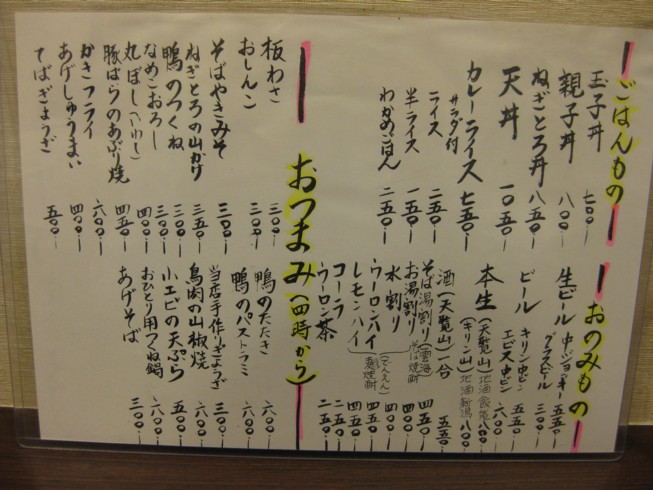 ごはんもの
玉子丼 七〇〇.-
親子丼 八〇〇.-
ねぎとろ丼 八五〇.-
天丼 一〇五〇.-
カレーライス サラダ付 七五〇.-
ライス 二五〇.-
半ライス 一五〇.-
わかめごはん 二五〇.-
おのみもの
生ビール 中ジョッキー 五五〇.-
グラスビール 三〇〇.-
ビール キリン中ビン 五五〇.-
エビス中ビン 六〇〇.-
本生 (天覧山) 地酒飯能 八〇〇.-
(キリン山) 地酒新潟 八〇〇.-
酒(天覧山)一合 五五〇.-
そば湯割り(雲海) 四五〇.-
お湯割り そば焼酎
水割り 四〇〇.-
ウーロンハイ 四五〇.-
レモンハイ 四五〇.-
コーラ 二五〇.-
ウーロン茶 二五〇.-
おつまみ(四時から)
板わさ 三〇〇.-
おしんこ 三〇〇.-
そばやきみそ 三〇〇.-
ねぎとろの山かけ 三五〇.-
鴨のつくね 三〇〇.-
なめこおろし 三〇〇.-
丸ぼし(いわし) 四〇〇.-
豚ばらのあぶり焼 四五〇.-
かきフライ 六〇〇.-
あげしゅうまい 四〇〇.-
てばぎょうざ 五〇〇.-
鴨のたたき 六〇〇.-
鴨のパストラミ 六〇〇.-
当店手作りぎょうざ 三〇〇.-
鳥肉の山椒焼 六〇〇.-
小エビの天ぷら 五〇〇.-
おひとり用つくね鍋 六〇〇.-
あげそば 三〇〇.-